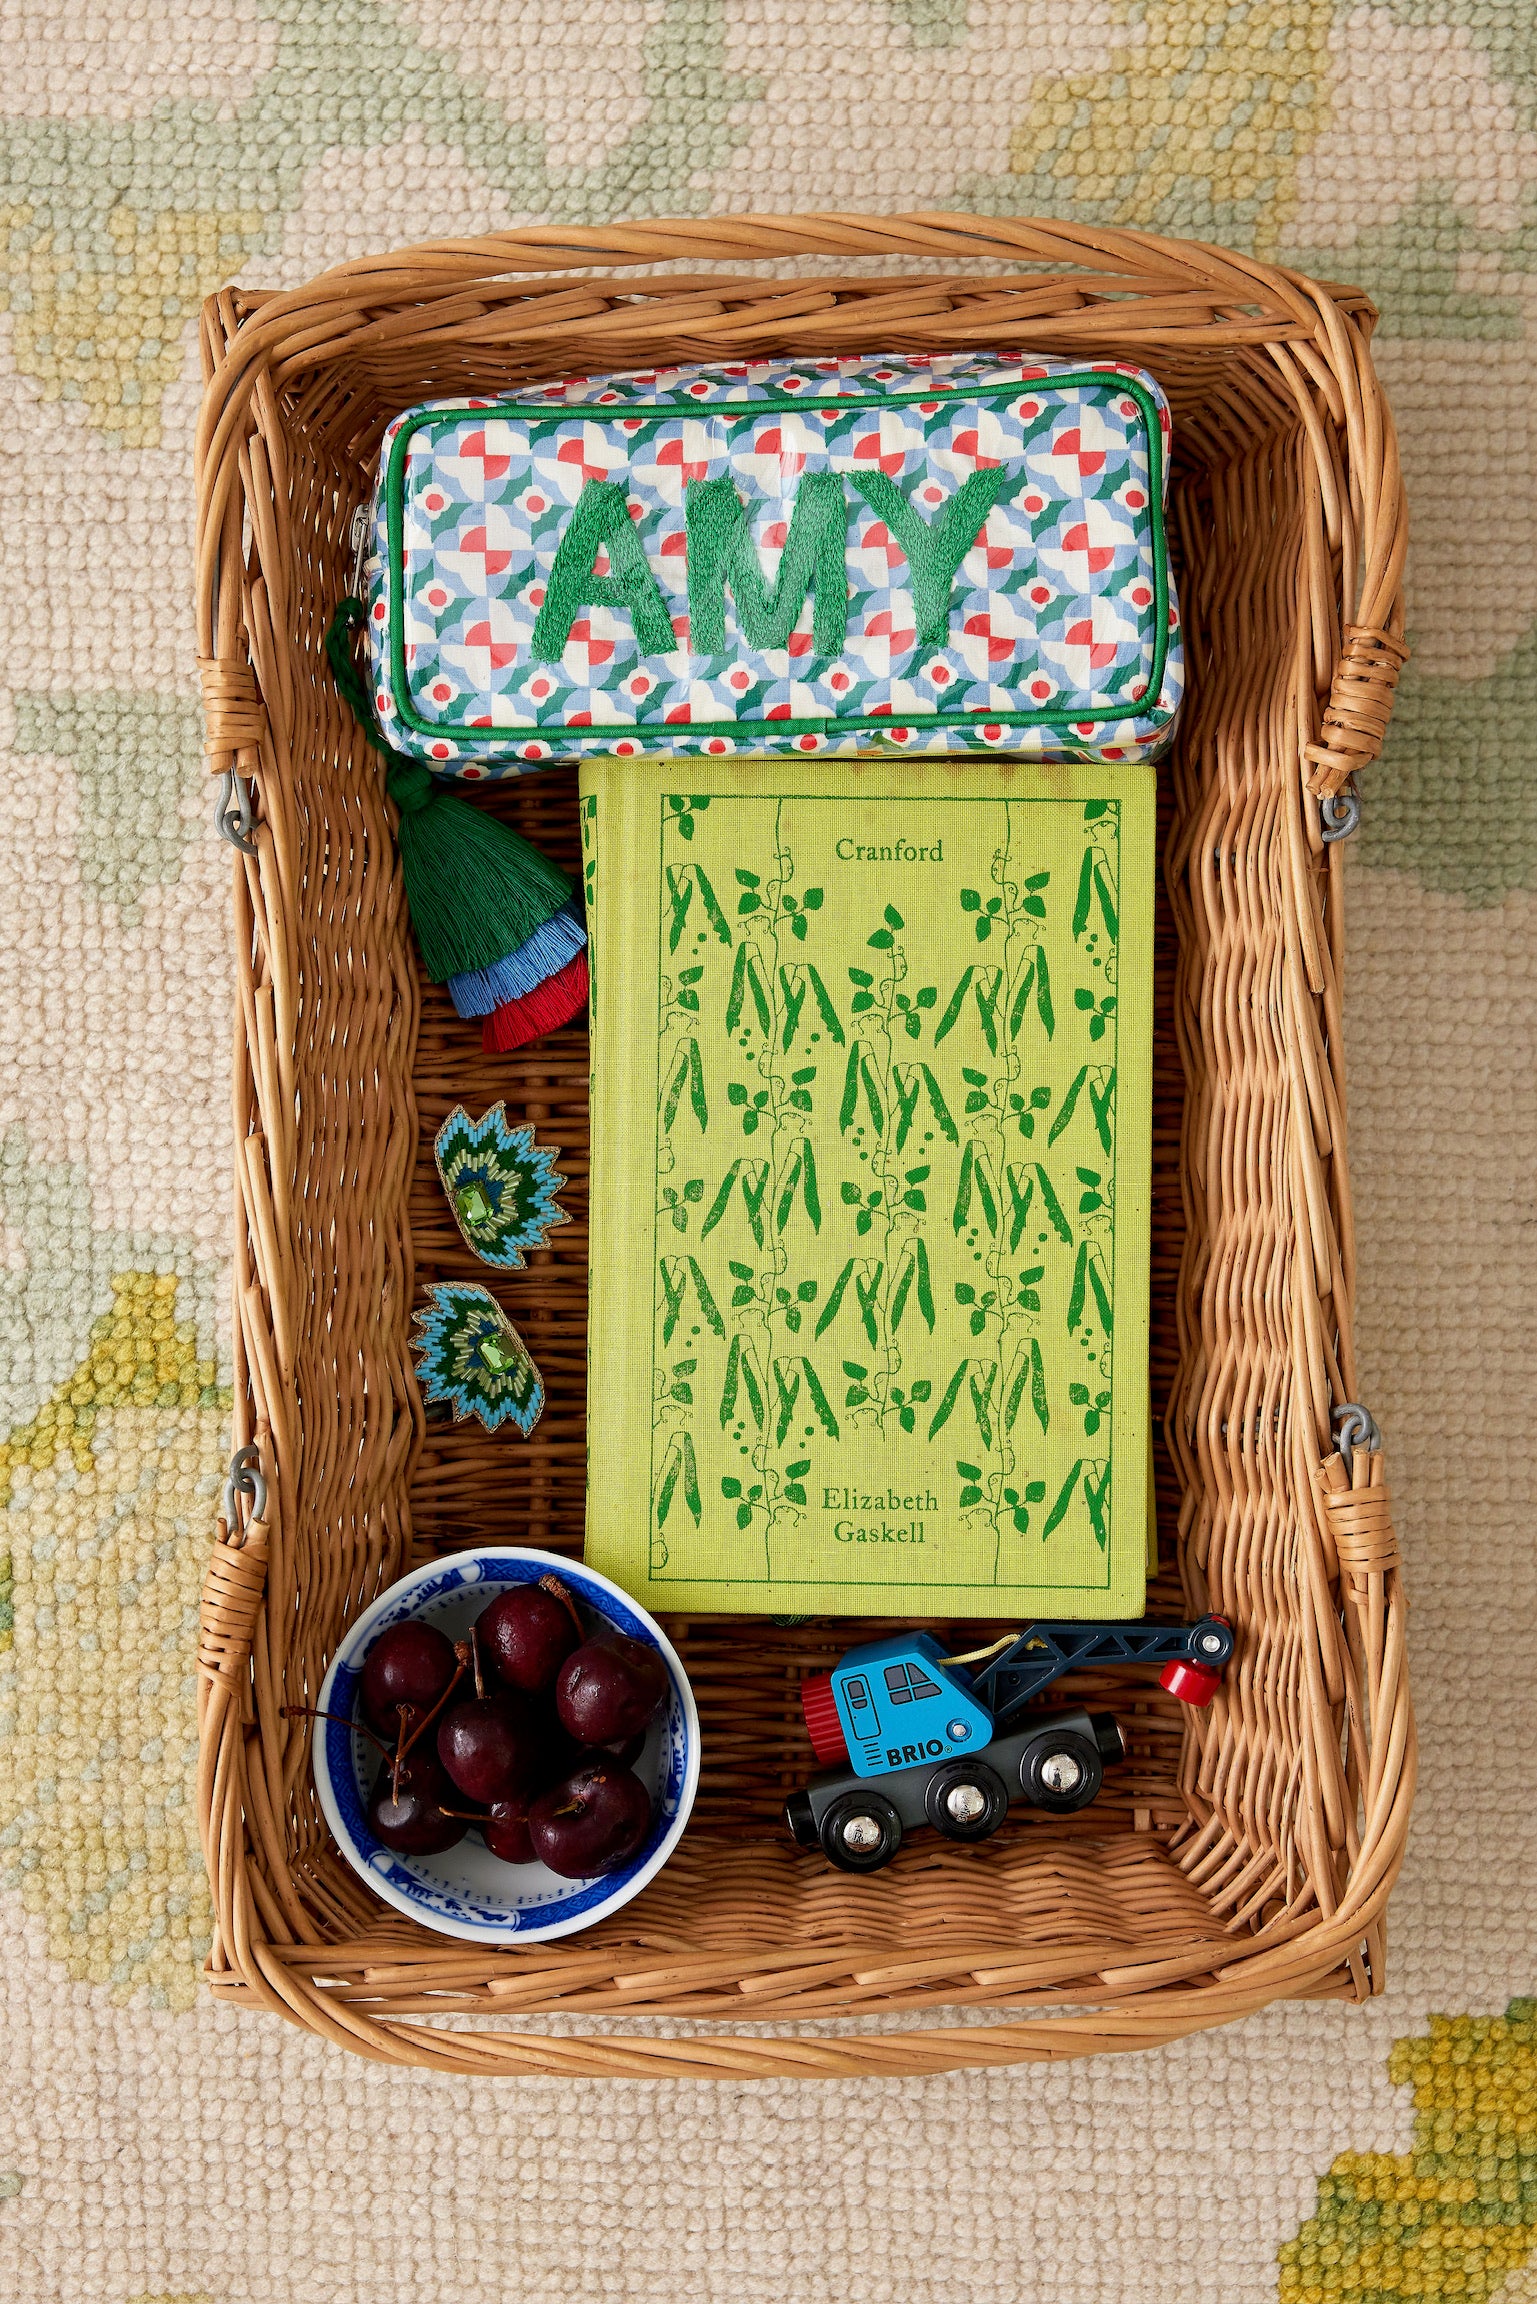 AMY
Cranford
Elizabeth
Gaskell
BRIO®